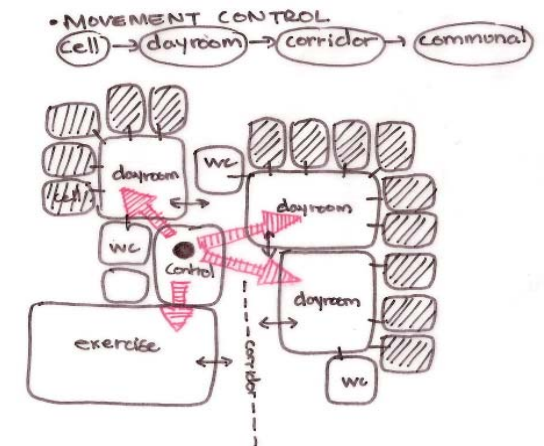 • MOVEMENT CONTROL
cell → dayroom → corridor → communal
dayroom
cell
wc
wc
control
dayroom
dayroom
exercise
corridor
wc